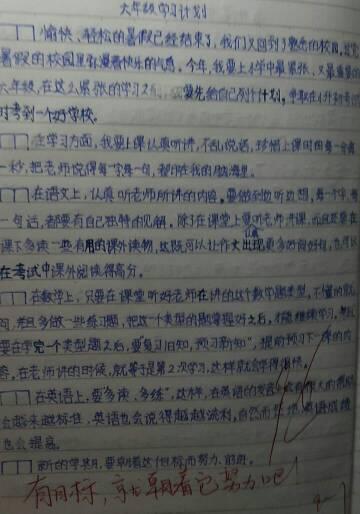 六年级学习计划
愉快、轻松的暑假已经结束了,我们又回到了熟悉的校园,
暑假的校园里弥漫着快乐的气息。今年,我要上小学中最紧张、又最重要的
六年级,在这么紧张的学习之 要先给自己列个计划,争取在小升初考试
时考到一个好学校。
在学习方面,我要上课认真听讲,不乱说话,珍惜上课时间每一分每
一秒,把老师说得每一字每一句,都印在我的脑海里。
在语文上,认真听老师所讲的内容。要做到边听边想,每一个字、每
一句话,都要有自己独特的见解。除了在课堂上要认真听老师讲课,而且还要在
课下多读一些有用的课外读物,这既可以让作文出现更多好词好句,也可以
在考试中课外阅读得高分。
在数学上,只要在课堂听好老师在讲的这个数学题类型,不懂的就
问,并且多做一些练习题,把这一个类型的题掌握好之后,才能继续学习。
要在学完一个类型题之后,要复习旧知,预习新知",提前预习下一课的内
容,在老师讲的时候,就等于是第2次学习,这样就会学得很快。
在英语上,要"多读、多练",这样,在英语的发音
会越来越标准,英语也会说得越来越流利,自然而然地英语成绩
也会提高。
新的学期,要朝着这个目标而努力、前进。
有目标,就朝着它努力吧!